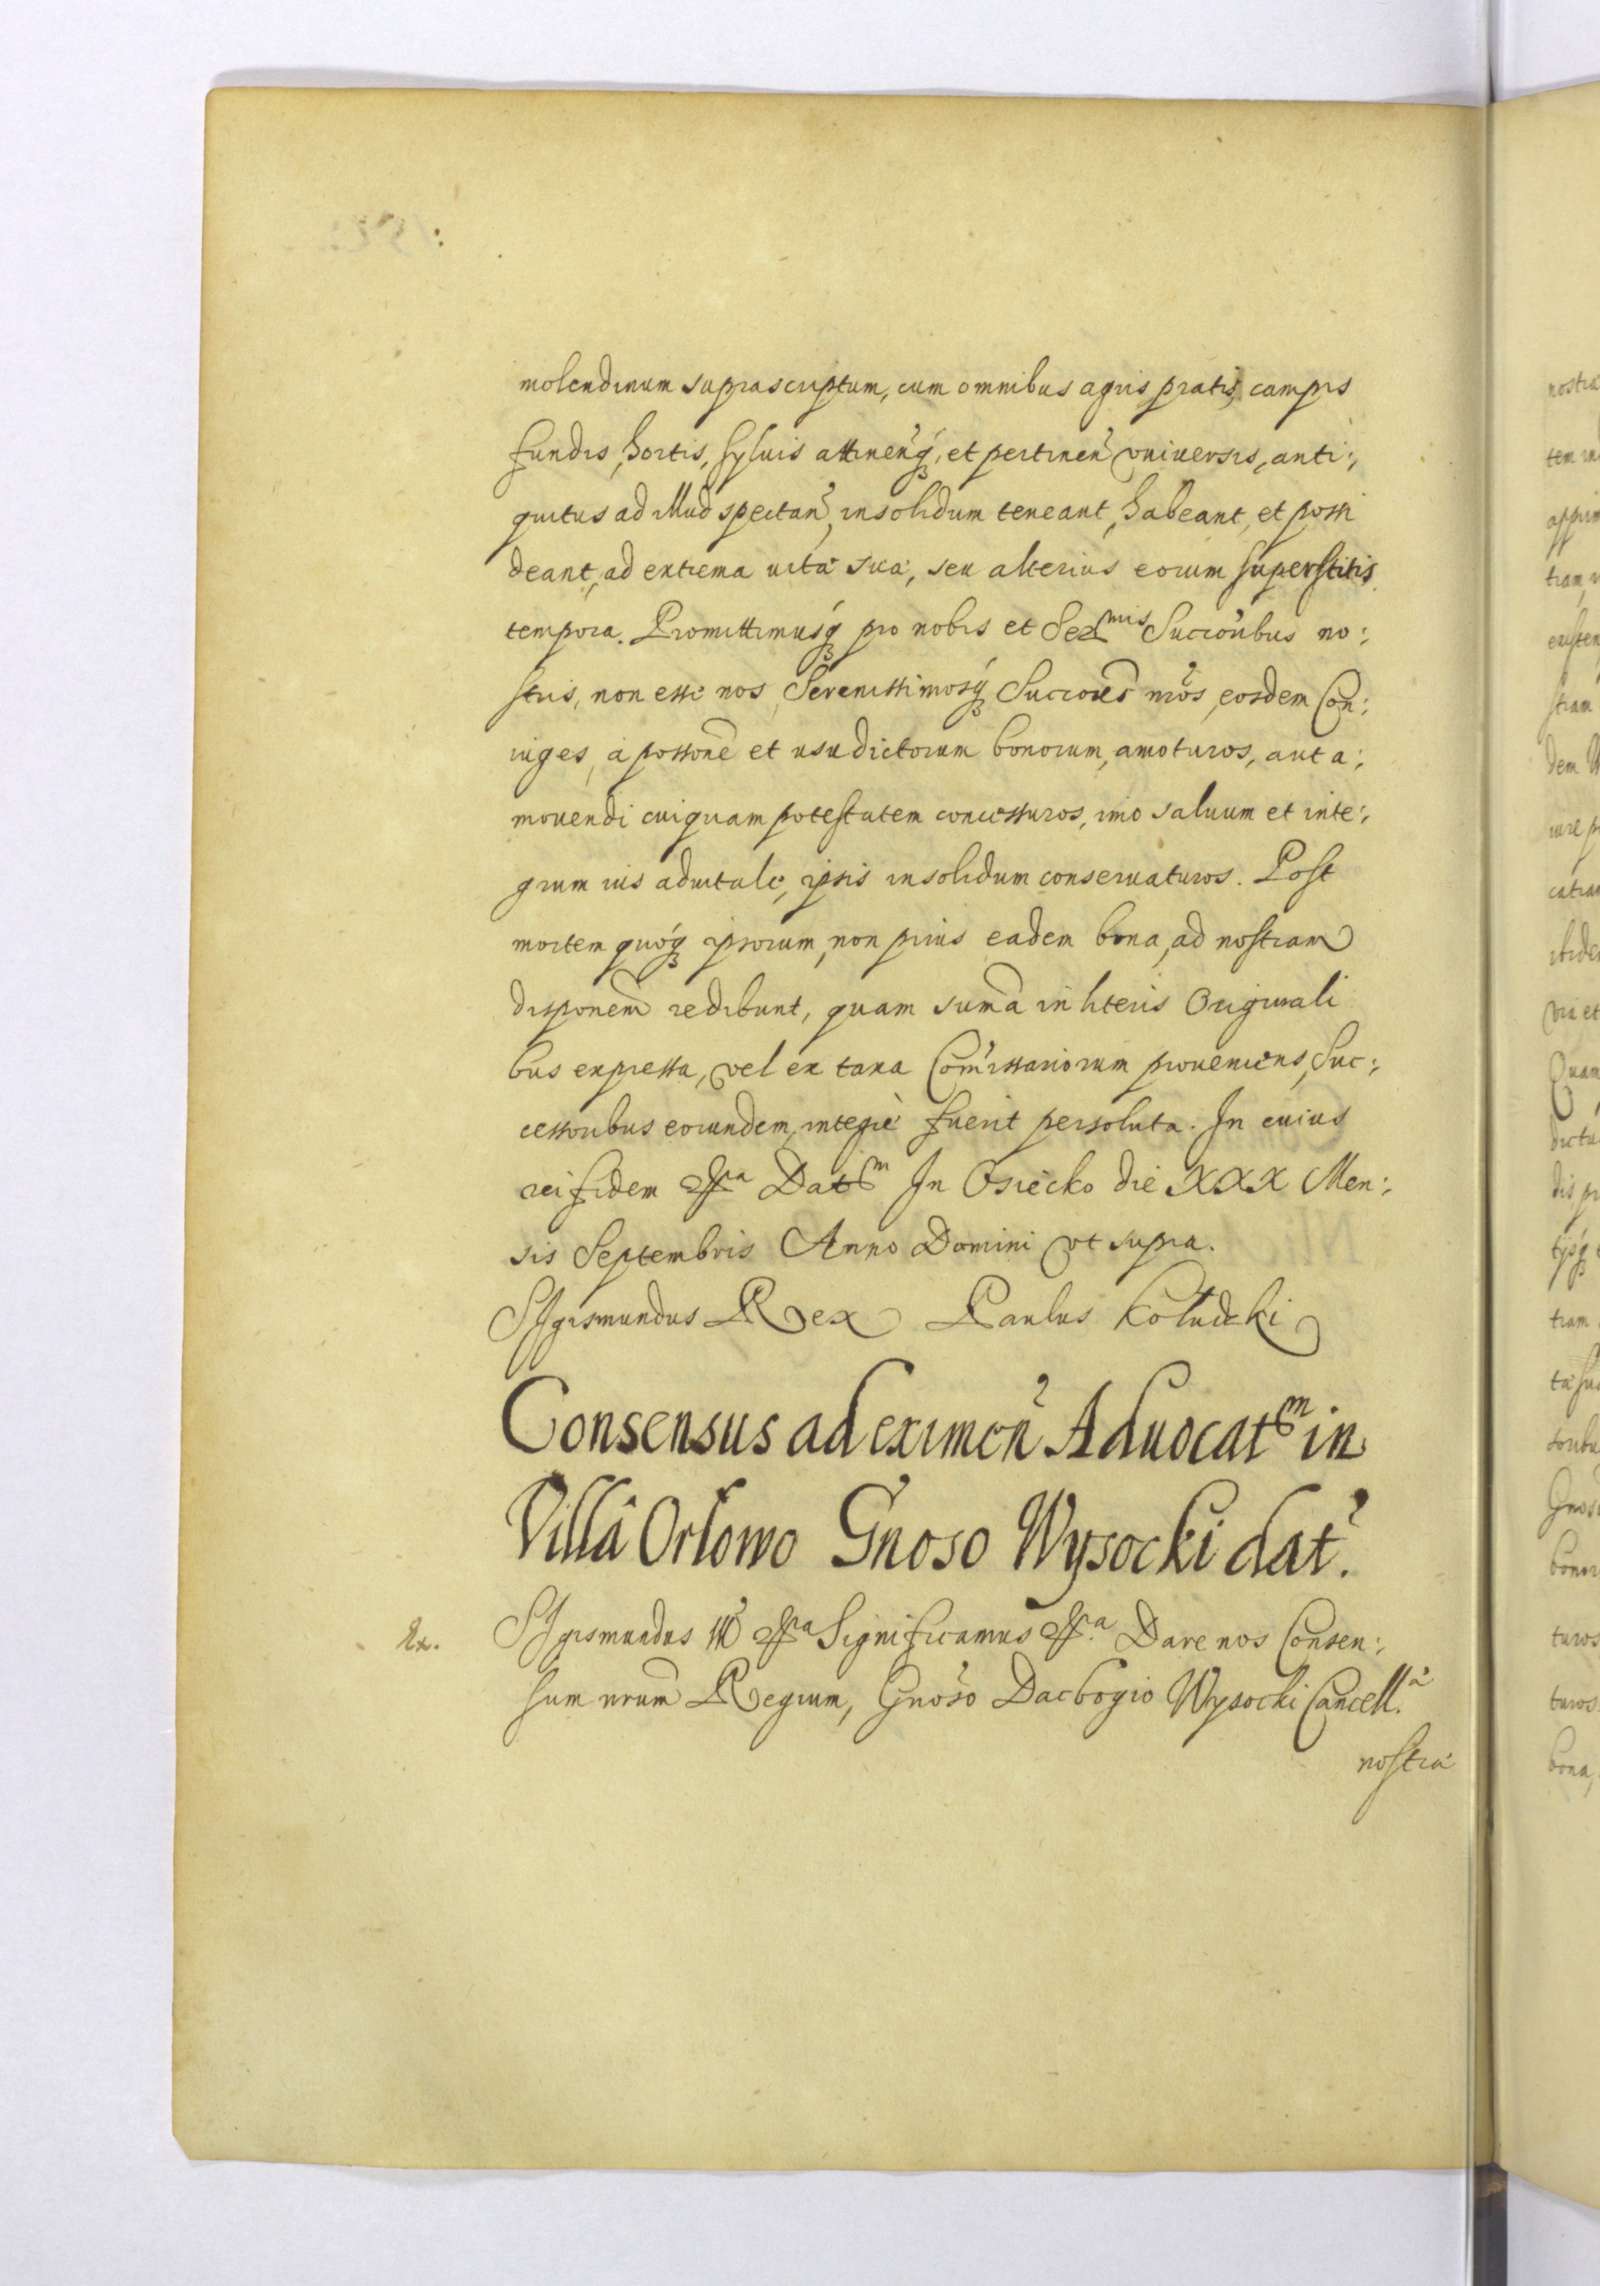 molendinum suprascriptum, cum omnibus agris pratis, campis
fundis, hortis, sylvis attinen̄q́ꝫ, et pertinen̄ vniuersis, anti:,
quitus ad illud spectan̄, insolidum teneant, habeant, et possi
deant, ad extrema uitæ suæ, seu alterius eorum superstitis
tempora. Promittimusq́ꝫ pro nobis et Serᵐⁱˢ Succōribus no:,
stris, non esse nos Serenissimosq́ꝫ Succores nros, eosdem Con:,
iuges, à possone et usu dictorum bonorum, amoturos, aut a:,
mouendi cuiquam potestatem concessuros, imo saluum et inte:,
grum ius aduitale, ipsis insolidum conseruaturos. Post
mortem quoq́ꝫ ipsorum, non prius eadem bona, ad nostram
disponem redibunt, quam suma in literis Originali
bus expressa, vel ex taxa Comissariorum proueniens, Suc:,
cessoribus eorundem, integrè fuerit persoluta. In cuius
rei fidem Datᵐ In Osiecko die XXX Men:,
sis Septembris Anno Domini vt supra.
SIgismundus Rex Paulus Kołudzki
Consensus ad eximen̄ Aduocatᵐ in
Villa Orłowo Gnoso Wysocki dat.
Ex. SIgismundus III Significamus Dare nos Consen:,
sum nrum Regium, Gnoso Dacbogio Wysocki Cancell.ᵃ
nostræ